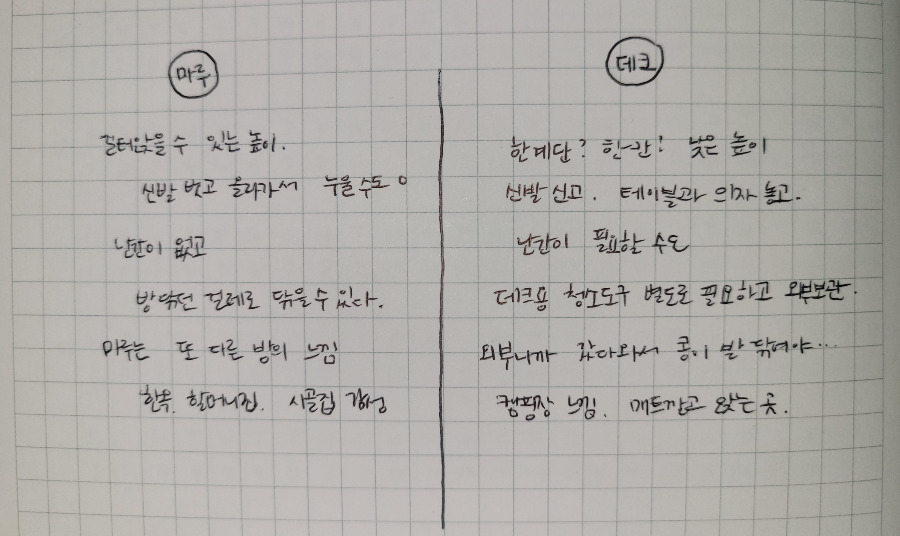 마루
걸터앉을 수 있는 높이.
신발 벗고 올라가서 누울 수도 o
난간이 없고
방 닦던 걸레로 닦을 수 있다.
마루는 또 다른 방의 느낌
한옥. 할머니집. 시골집 감성
데크
한계단? 한칸? 낮은 높이
신발 신고. 테이블과 의자 놓고.
난간이 필요할 수도
데크용 청소도구 별도로 필요하고 외부보관.
외부니까 갔다와서 콩이 발 닦여야...
캠핑장 느낌. 매트깔고 앉는 곳.